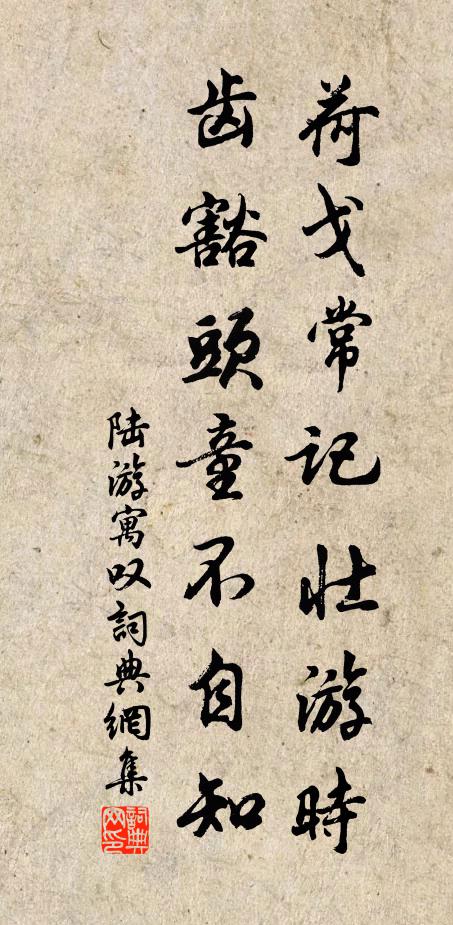 荷戈常记壮游時
齿豁頭童不自知
陆游寓叹詞典網集
詞典網印